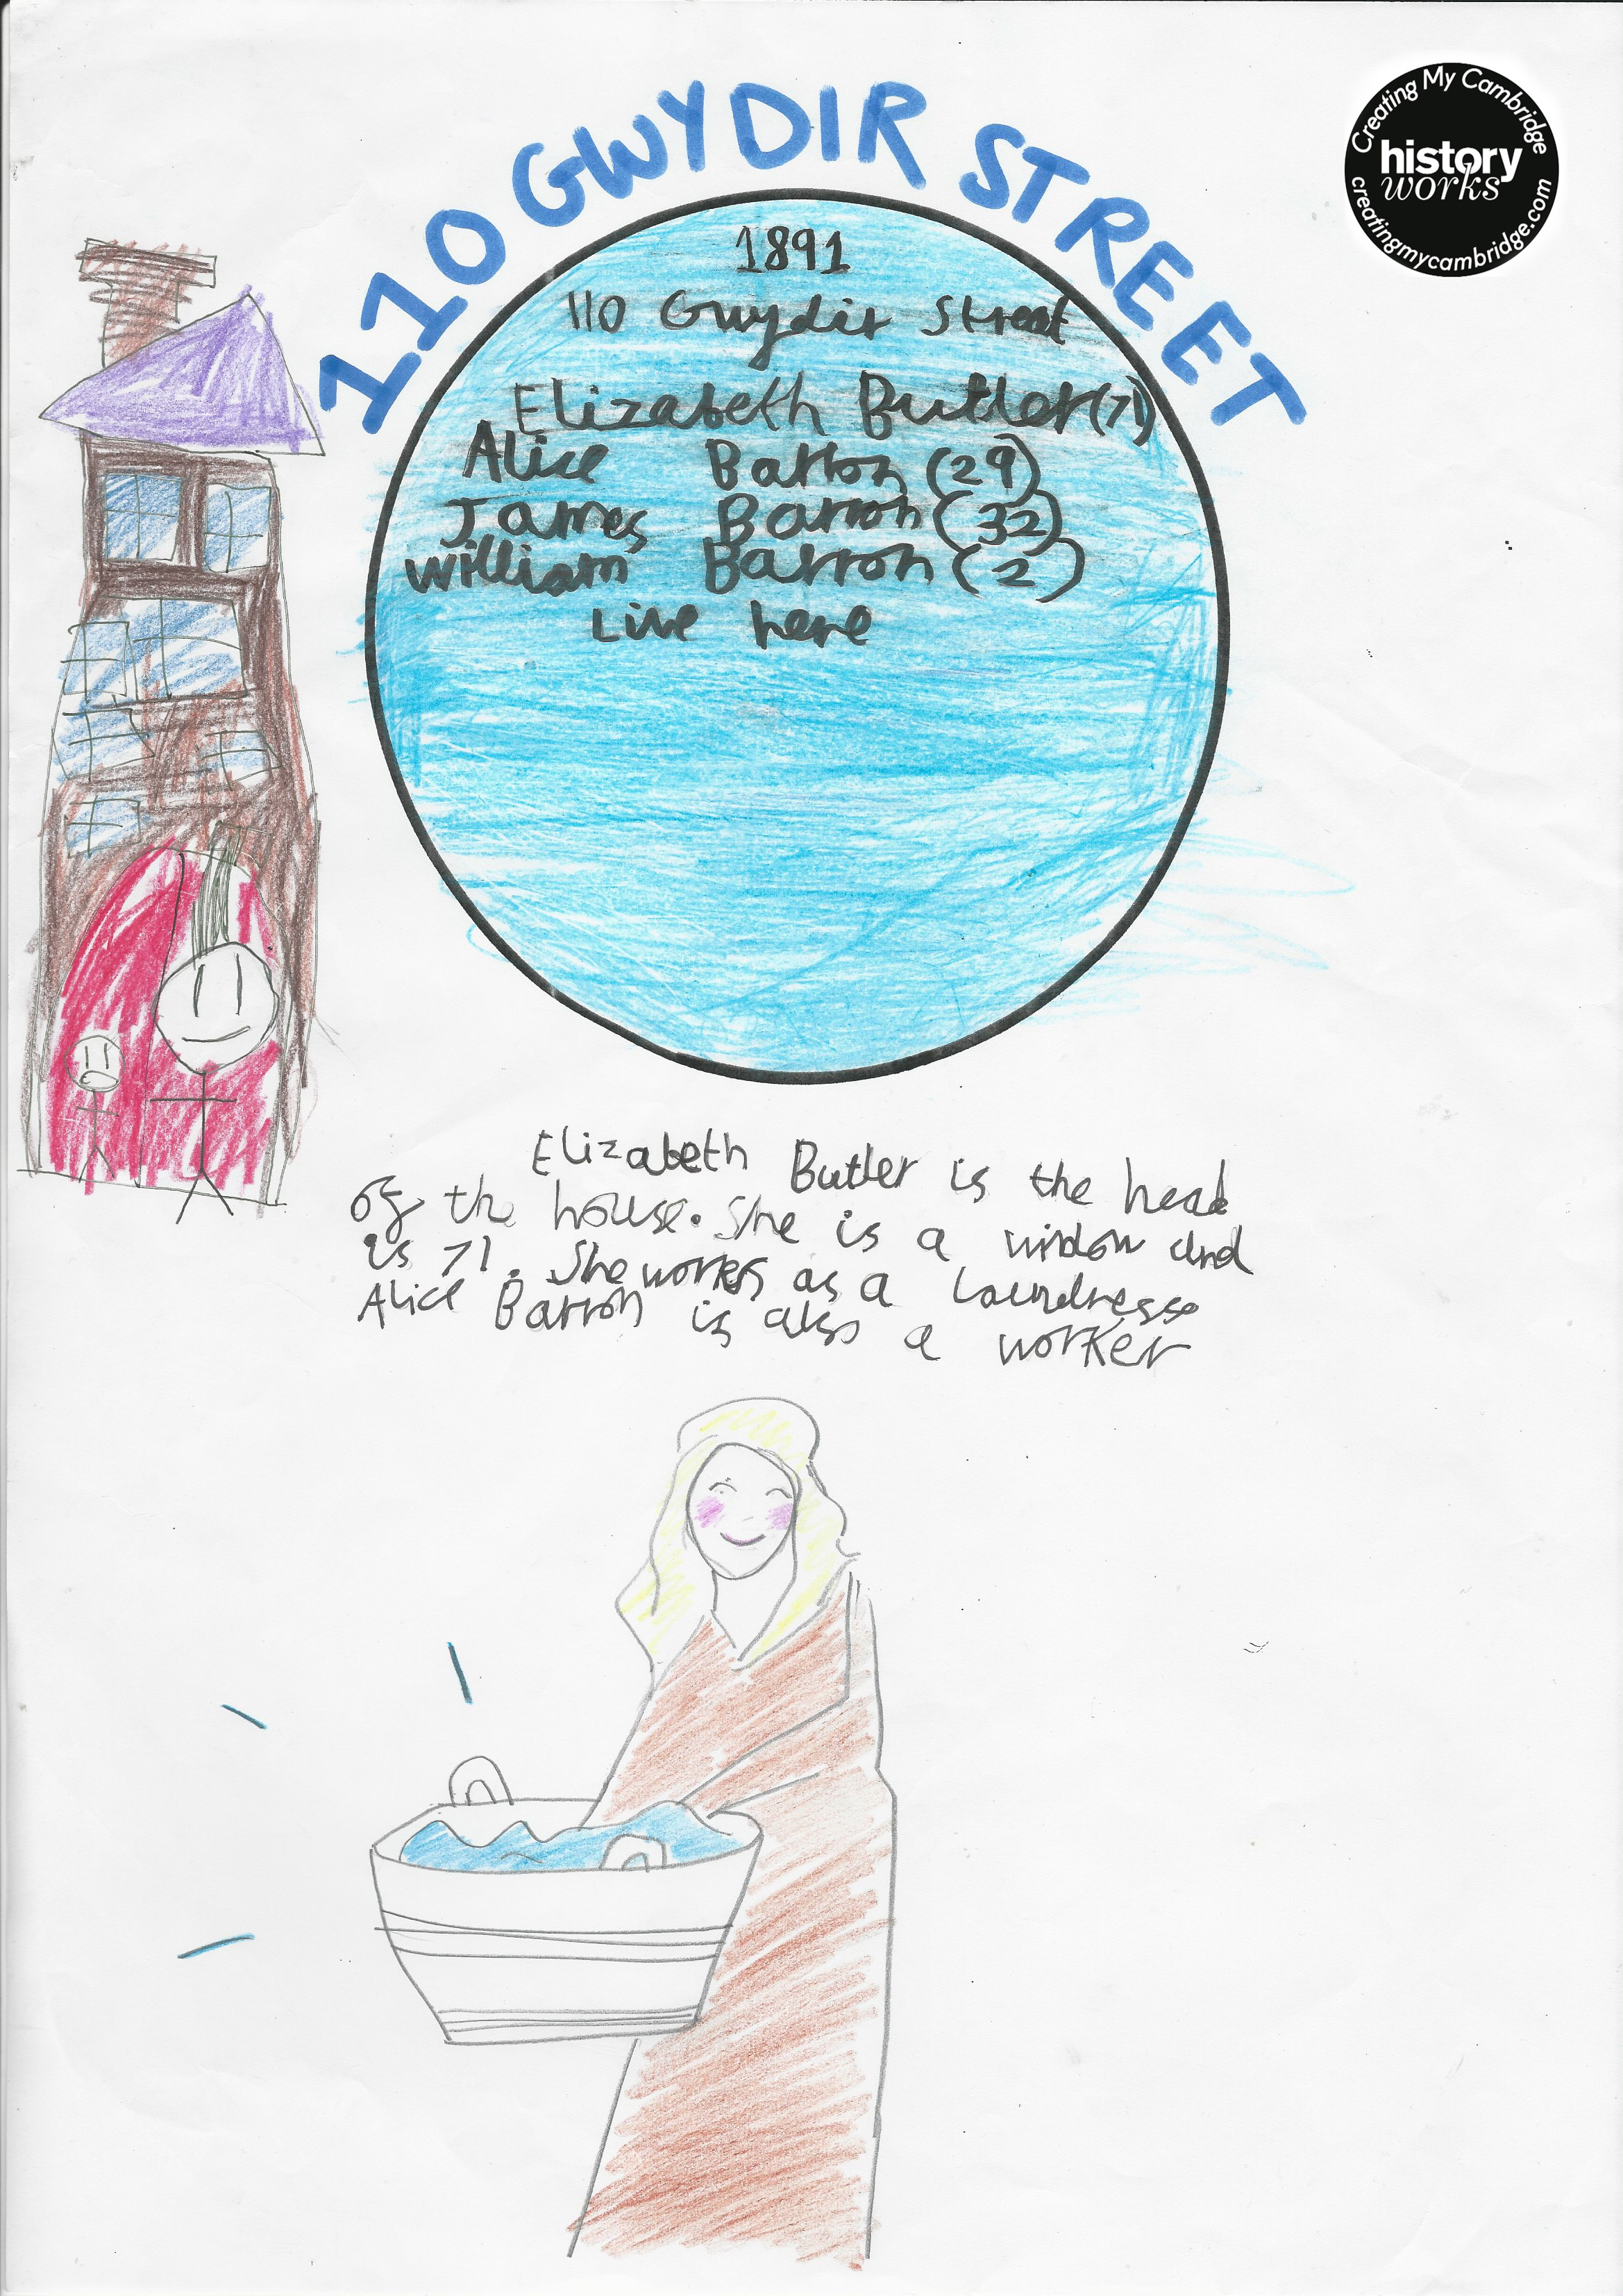 110 GWYDIR STREET
Creating My Cambridge
history
works
creatingmycambridge.com
1891
110 Gwydir Street
Elizabeth Butler (71)
Alice Barron (29)
James Barron (32)
William Barron (2)
Live here
Elizabeth Butler is the head
of the house. She is a widow and
is 71. She works as a laundresse
Alice Barron is also a worker